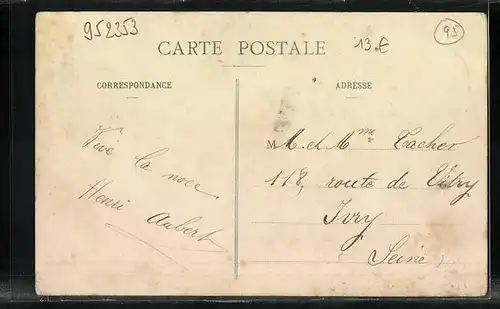 952353
13 €
95
CARTE POSTALE
CORRESPONDANCE
ADRESSE
Vive la noce
Henri Aubert
M M. et Mme Cacher
118, route de Vitry
Ivry
(Seine)